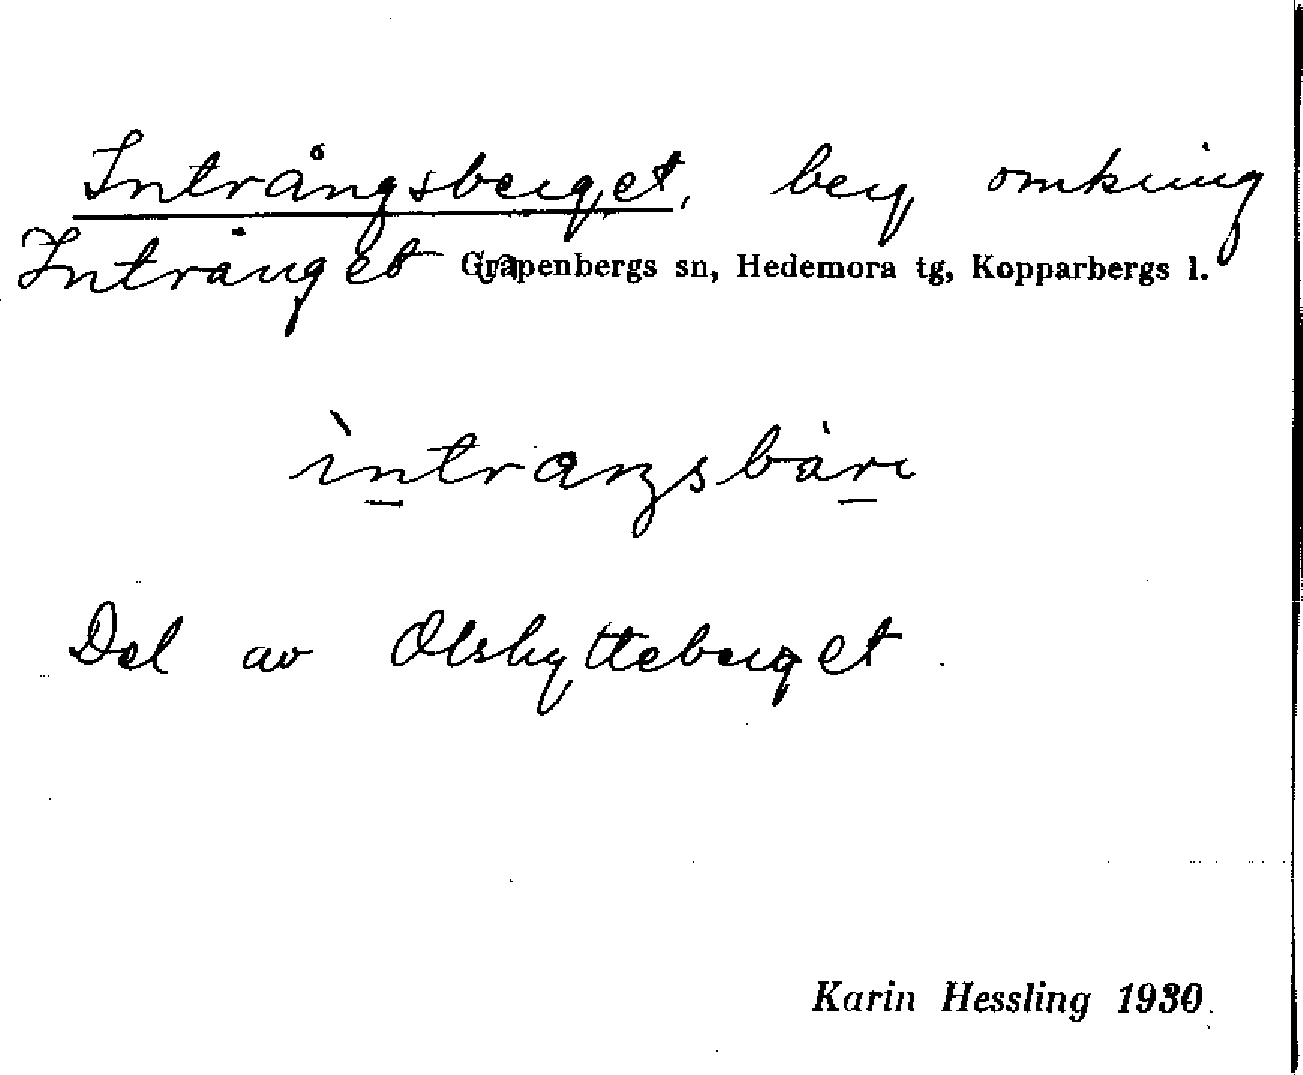 Intrångsberget, berg omkring
Intrånget Garpenbergs sn, Hedemora tg, Kopparbergs l.
ìntraŋsbàrı
Del av Olshytteberget.
Karin Hessling 1930.